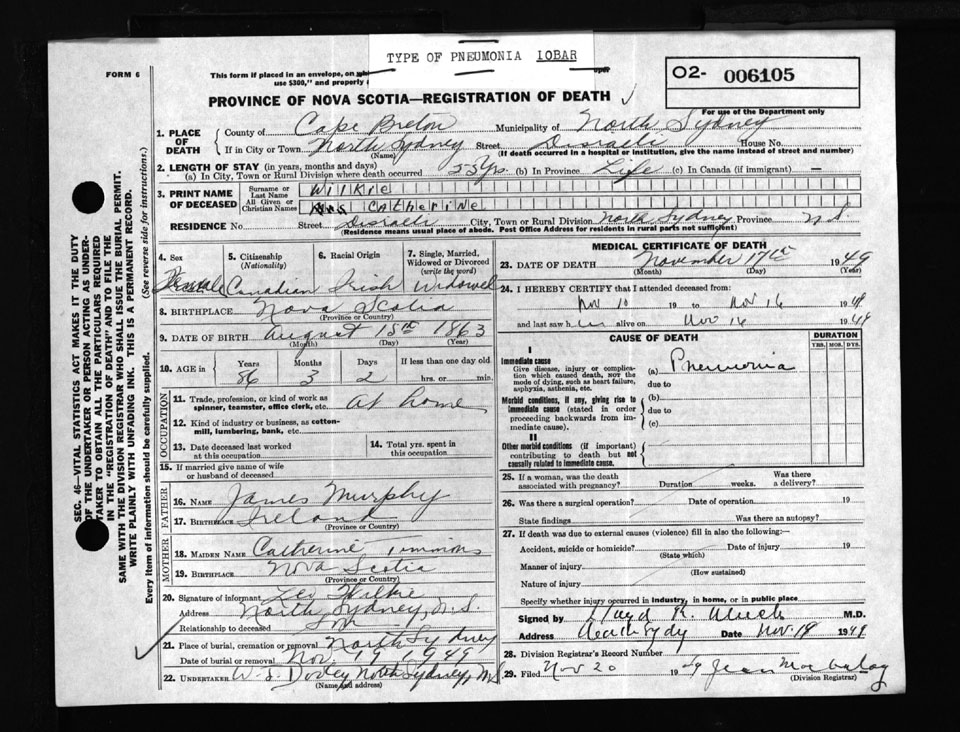 TYPE OF PNEUMONIA LOBAR
FORM 6
This form if placed in an envelope, on
use $300," and property
O2- 006105
For use of the Department only
PROVINCE OF NOVA SCOTIA—REGISTRATION OF DEATH
1. PLACE OF DEATH
County of Cape Breton Municipality of North Sydney
If in City or Town North Sydney Street Disraeli House No.
(Name) (If death occurred in a hospital or institution, give the name instead of street and number)
2. LENGTH OF STAY (in years, months and days)
(a) In City, Town or Rural Division where death occurred 55 Yrs. (b) In Province Life (c) In Canada (if immigrant) —
3. PRINT NAME OF DECEASED
Surname or Last Name WILKIE
All Given or Christian Names Mrs CATHERINE
RESIDENCE No. Street Disraeli City, Town or Rural Division North Sydney Province N.S.
(Residence means usual place of abode. Post Office Address for residents in rural parts not sufficient)
4. Sex 5. Citizenship (Nationality) 6. Racial Origin 7. Single, Married, Widowed or Divorced (write the word)
Female Canadian Irish Widowed
8. BIRTHPLACE Nova Scotia
(Province or Country)
9. DATE OF BIRTH August 15th 1863
(Month) (Day) (Year)
10. AGE in Years Months Days If less than one day old
86 3 2 hrs. or min.
OCCUPATION
11. Trade, profession, or kind of work as spinner, teamster, office clerk, etc. At home
12. Kind of industry or business, as cotton-mill, lumbering, bank, etc.
13. Date deceased last worked at this occupation
14. Total yrs. spent in this occupation
15. If married give name of wife or husband of deceased
FATHER
16. NAME James Murphy
17. BIRTHPLACE Ireland
(Province or Country)
MOTHER
18. MAIDEN NAME Catherine Timmons
19. BIRTHPLACE Nova Scotia
(Province or Country)
20. Signature of informant Leo Wilkie
Address North Sydney, N.S.
Relationship to deceased Son
21. Place of burial, cremation or removal North Sydney
Date of burial or removal Nov. 19 1949
22. UNDERTAKER W. J. Dooley North Sydney, N.S.
(Name and address)
MEDICAL CERTIFICATE OF DEATH
23. DATE OF DEATH November 17th 1949
(Month) (Day) (Year)
24. I HEREBY CERTIFY that I attended deceased from:
Nov 10 19 to Nov 16 1949
and last saw her alive on Nov 16 1949
CAUSE OF DEATH
DURATION
YRS. MOS. DYS.
I
Immediate cause
Give disease, injury or complication which caused death, not the mode of dying, such as heart failure, asphyxia, asthenia, etc.
(a) Pneumonia
due to
Morbid conditions, if any, giving rise to immediate cause (stated in order proceeding backwards from immediate cause).
(b)
due to
(c)
II
Other morbid conditions (if important) contributing to death but not causally related to immediate cause.
25. If a woman, was the death associated with pregnancy? Duration weeks. Was there a delivery?
26. Was there a surgical operation? Date of operation 19
State findings Was there an autopsy?
27. If death was due to external causes (violence) fill in also the following:—
Accident, suicide or homicide? Date of injury 19
(State which)
Manner of injury
(How sustained)
Nature of injury
Specify whether injury occurred in industry, in home, or in public place
Signed by Lloyd M.D.
Address Date Nov. 18 1949
28. Division Registrar's Record Number
29. Filed Nov 20 1949 Jean
(Division Registrar)
SEC. 46—VITAL STATISTICS ACT MAKES IT THE DUTY
OF THE UNDERTAKER OR PERSON ACTING AS UNDER-
TAKER TO OBTAIN ALL THE PARTICULARS REQUIRED
IN THE "REGISTRATION OF DEATH" AND TO FILE THE
SAME WITH THE DIVISION REGISTRAR WHO SHALL ISSUE THE BURIAL PERMIT.
WRITE PLAINLY WITH UNFADING INK. THIS IS A PERMANENT RECORD.
Every item of information should be carefully supplied. (See reverse side for instructions.)